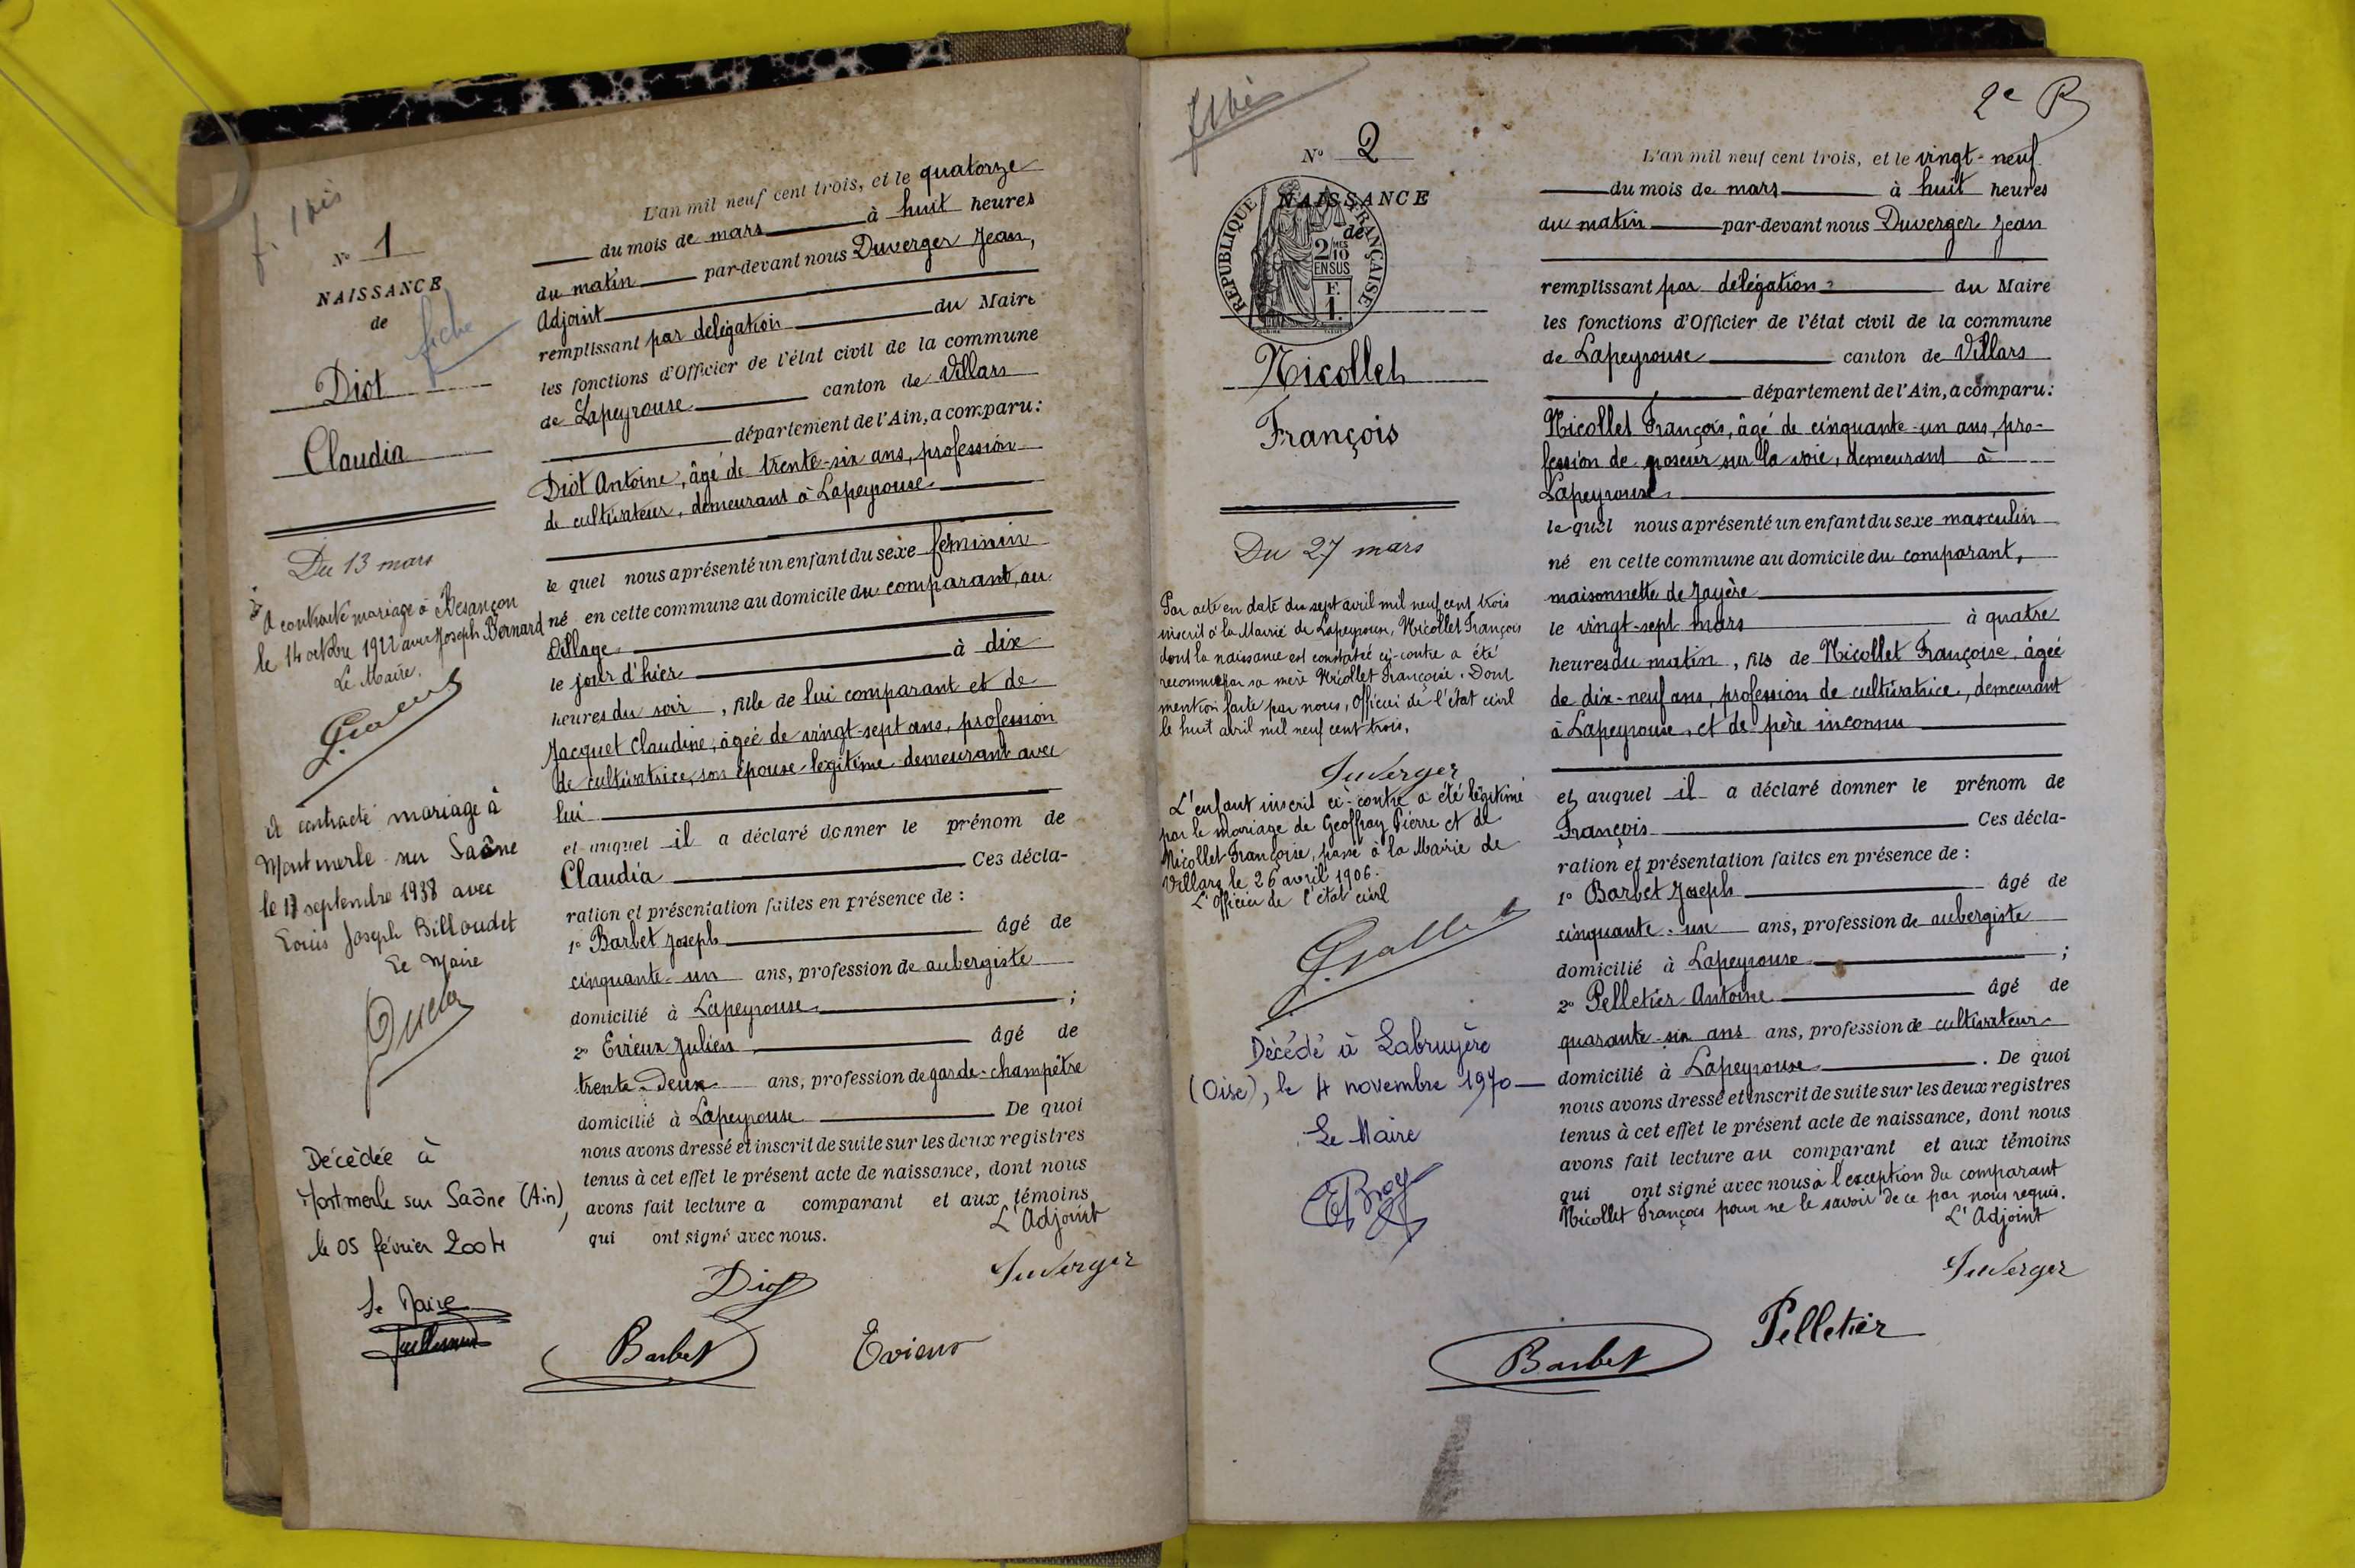 f. 1 bis
N° 1
NAISSANCE
de
fiche
Diot
Claudia
Du 13 mars
A contracté mariage à Besançon
le 14 octobre 1922 avec Joseph Bernard
Le Maire.
A contracté mariage à
Montmerle sur Saône
le 17 septembre 1938 avec
Louis Joseph Billoudet
Le Maire
Décédée à
Montmerle sur Saône (Ain),
le 05 février 2004
Le Maire
L'an mil neuf cent trois, et le quatorze
du mois de mars à huit heures
du matin par-devant nous Duverger Jean,
Adjoint
remplissant par délégation du Maire
les fonctions d'Officier de l'état civil de la commune
de Lapeyrouse canton de Villars
département de l'Ain, a comparu:
Diot Antoine, âgé de trente-six ans, profession
de cultivateur, demeurant à Lapeyrouse
le quel nous a présenté un enfant du sexe féminin
né en cette commune au domicile du comparant, au
village
le jour d'hier à dix
heures du soir, fille de lui comparant et de
Jacquet Claudine, âgée de vingt-sept ans, profession
de cultivatrice, son épouse légitime demeurant avec
lui
et auquel il a déclaré donner le prénom de
Claudia Ces décla-
ration et présentation faites en présence de :
1° Barbet Joseph âgé de
cinquante-un ans, profession de aubergiste
domicilié à Lapeyrouse ;
2° Evieux Julien âgé de
trente-deux ans, profession de garde-champêtre
domicilié à Lapeyrouse De quoi
nous avons dressé et inscrit de suite sur les deux registres
tenus à cet effet le présent acte de naissance, dont nous
avons fait lecture a comparant et aux témoins
qui ont signé avec nous.
L'Adjoint
Diot
Duverger
Barbet
Evieux
2e B
N° 2
NAISSANCE
de
RÉPUBLIQUE FRANÇAISE
2/10 MES
EN SUS
F.
1.
Nicollet
François
Du 27 mars
Par acte en date du sept avril mil neuf cent trois
inscrit à la Mairie de Lapeyrouse, Nicollet François
dont la naissance est constatée ci-contre a été
reconnu par sa mère Nicollet Françoise. Dont
mention faite par nous, Officier de l'état civil
le huit avril mil neuf cent trois.
Duverger
L'enfant inscrit ci-contre a été légitimé
par le mariage de Geoffray Pierre et de
Nicollet Françoise, passé à la Mairie de
Villars le 26 avril 1906.
L'Officier de l'état civil
Décédé à Labruyère
(Oise), le 4 novembre 1970
Le Maire
L'an mil neuf cent trois, et le vingt-neuf
du mois de mars à huit heures
du matin par-devant nous Duverger Jean
remplissant par délégation du Maire
les fonctions d'Officier de l'état civil de la commune
de Lapeyrouse canton de Villars
département de l'Ain, a comparu:
Nicollet François, âgé de cinquante-un ans, pro-
fession de poseur sur la voie, demeurant à
Lapeyrouse
le quel nous a présenté un enfant du sexe masculin
né en cette commune au domicile du comparant,
maisonnette de Jayère
le vingt-sept mars à quatre
heures du matin, fils de Nicollet Françoise, âgée
de dix-neuf ans, profession de cultivatrice, demeurant
à Lapeyrouse, et de père inconnu
et auquel il a déclaré donner le prénom de
François Ces décla-
ration et présentation faites en présence de :
1° Barbet Joseph âgé de
cinquante-un ans, profession de aubergiste
domicilié à Lapeyrouse ;
2° Pelletier Antoine âgé de
quarante-six ans ans, profession de cultivateur
domicilié à Lapeyrouse. De quoi
nous avons dressé et inscrit de suite sur les deux registres
tenus à cet effet le présent acte de naissance, dont nous
avons fait lecture au comparant et aux témoins
qui ont signé avec nous à l'exception du comparant
Nicollet François pour ne le savoir de ce par nous requis.
L'Adjoint
Duverger
Pelletier
Barbet